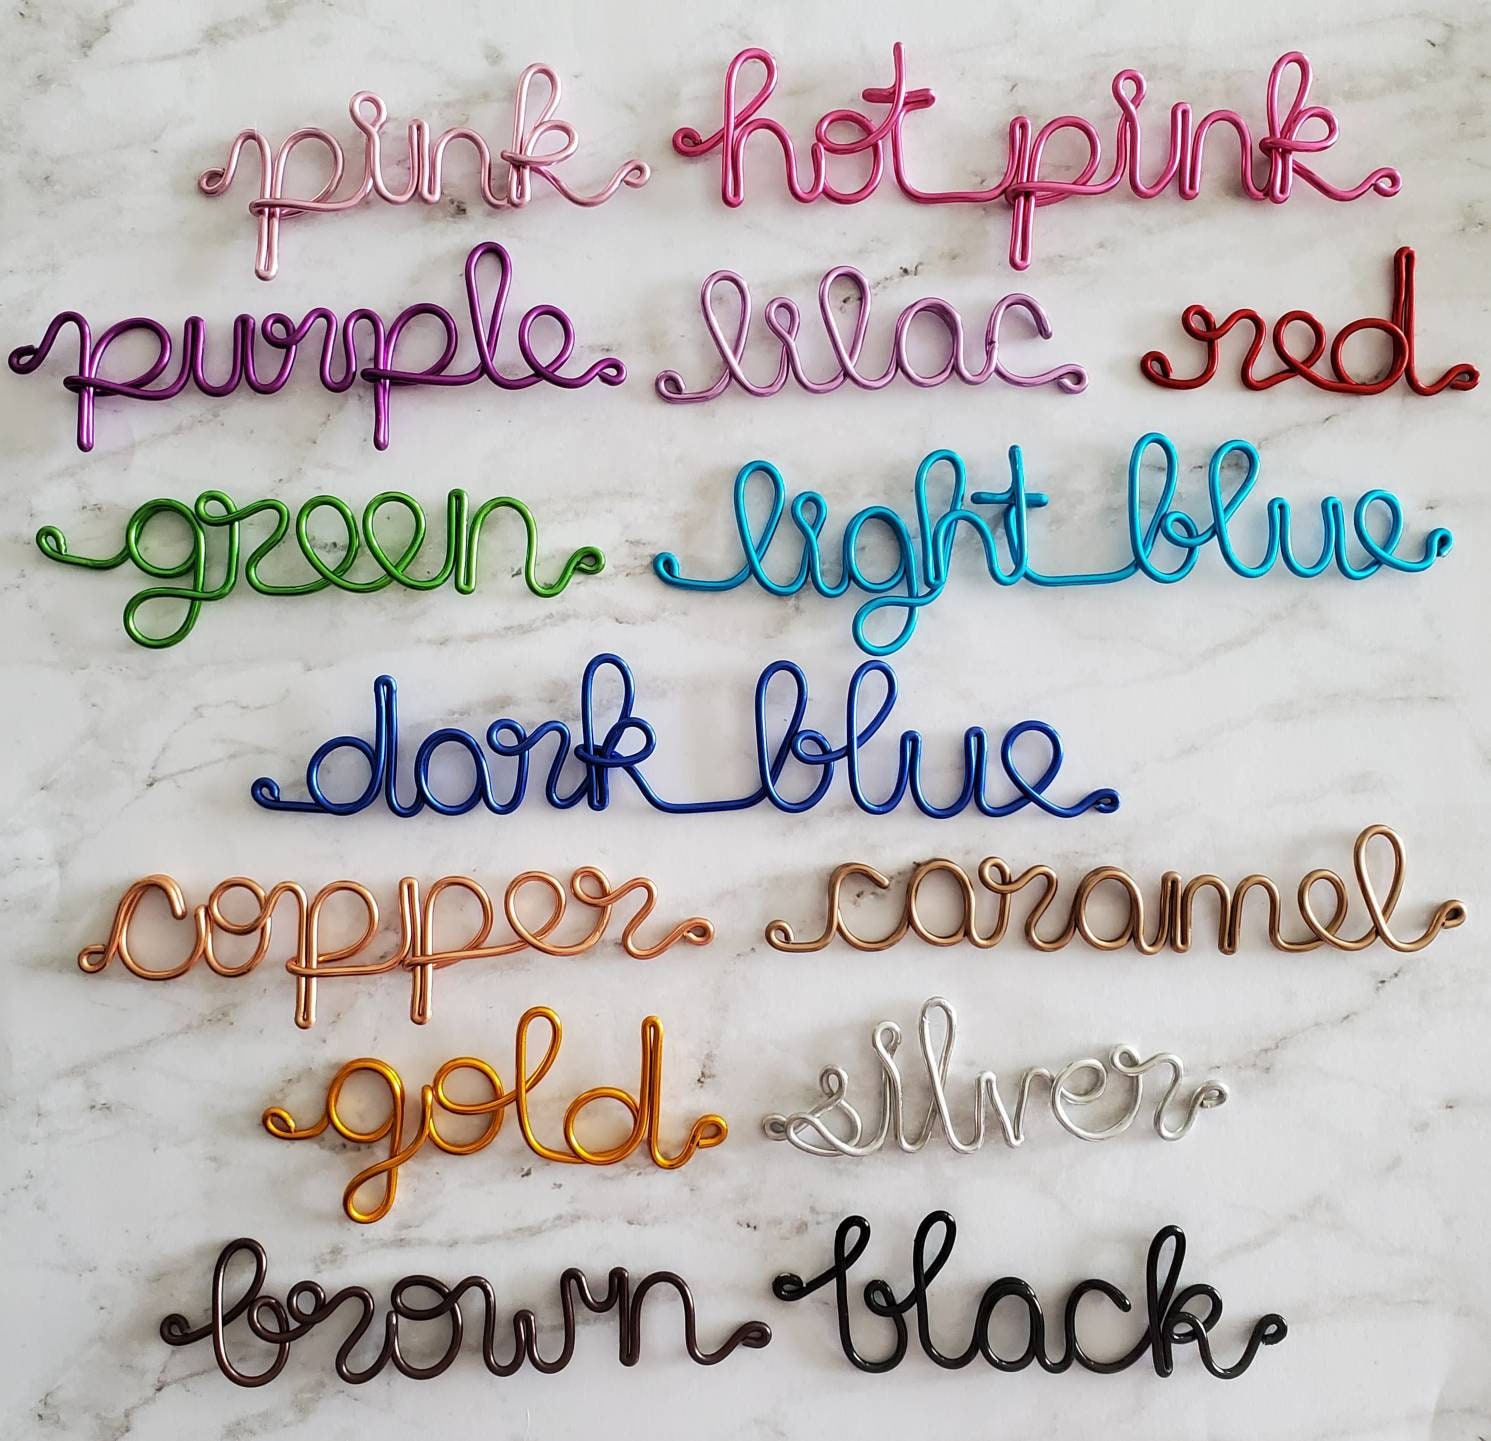 pink hot pink
purple lilac red
green light blue
dark blue
copper caramel
gold silver
brown black